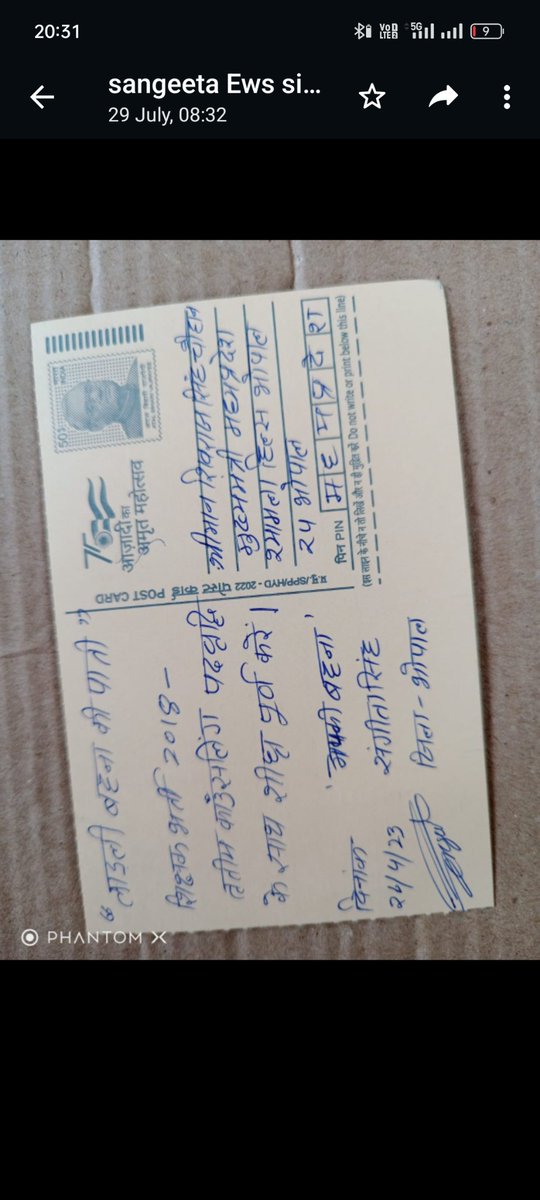 20:31
5G
9
sangeeta Ews si...
29 July, 08:32
"लाडली बहना की पाती"
शिक्षक भर्ती 2018 -
तृतीय काउंसलिंग पदवृद्धि
के साथ शीघ्र पूर्ण करें।
'आपकी बहना'
दिनांक-
संगीता सिंह
जिला - भोपाल
पोस्ट कार्ड POST CARD
प्र.मु./SPP/HYD - 2022
75
आज़ादी का
अमृत महोत्सव
भारत
INDIA
श्रीमान शिवराज सिंह चौहान
मुख्यमंत्री मध्यप्रदेश
श्यामला हिल्स भोपाल
भोपाल
पिन PIN
म ध्य प्र दे श
(इस लाइन के नीचे न तो लिखें और न ही मुद्रित करें Do not write or print below this line)
PHANTOM X